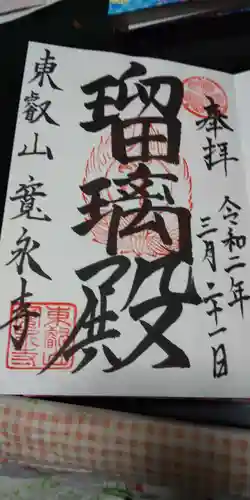 奉拝
令和二年
三月二十一日
瑠璃殿
東叡山寛永寺